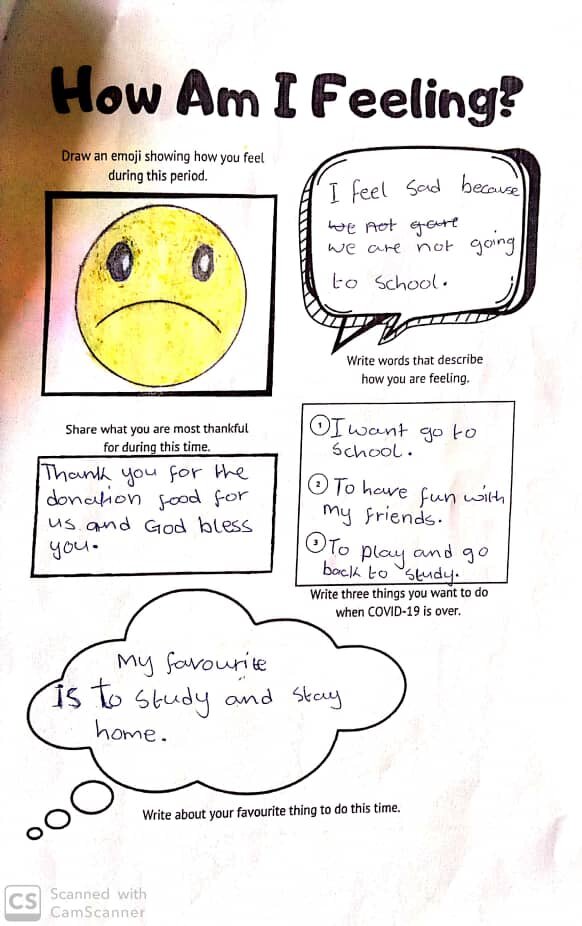 How Am I Feeling?
Draw an emoji showing how you feel
during this period.
I feel sad because
we not gare
we are not going
to school.
Write words that describe
how you are feeling.
Share what you are most thankful
for during this time.
Thank you for the
donation food for
us and God bless
you.
1 I want go to
school.
2 To have fun with
my friends.
3 To play and go
back to study.
Write three things you want to do
when COVID-19 is over.
My favourite
is to study and stay
home.
Write about your favourite thing to do this time.
CS Scanned with
CamScanner